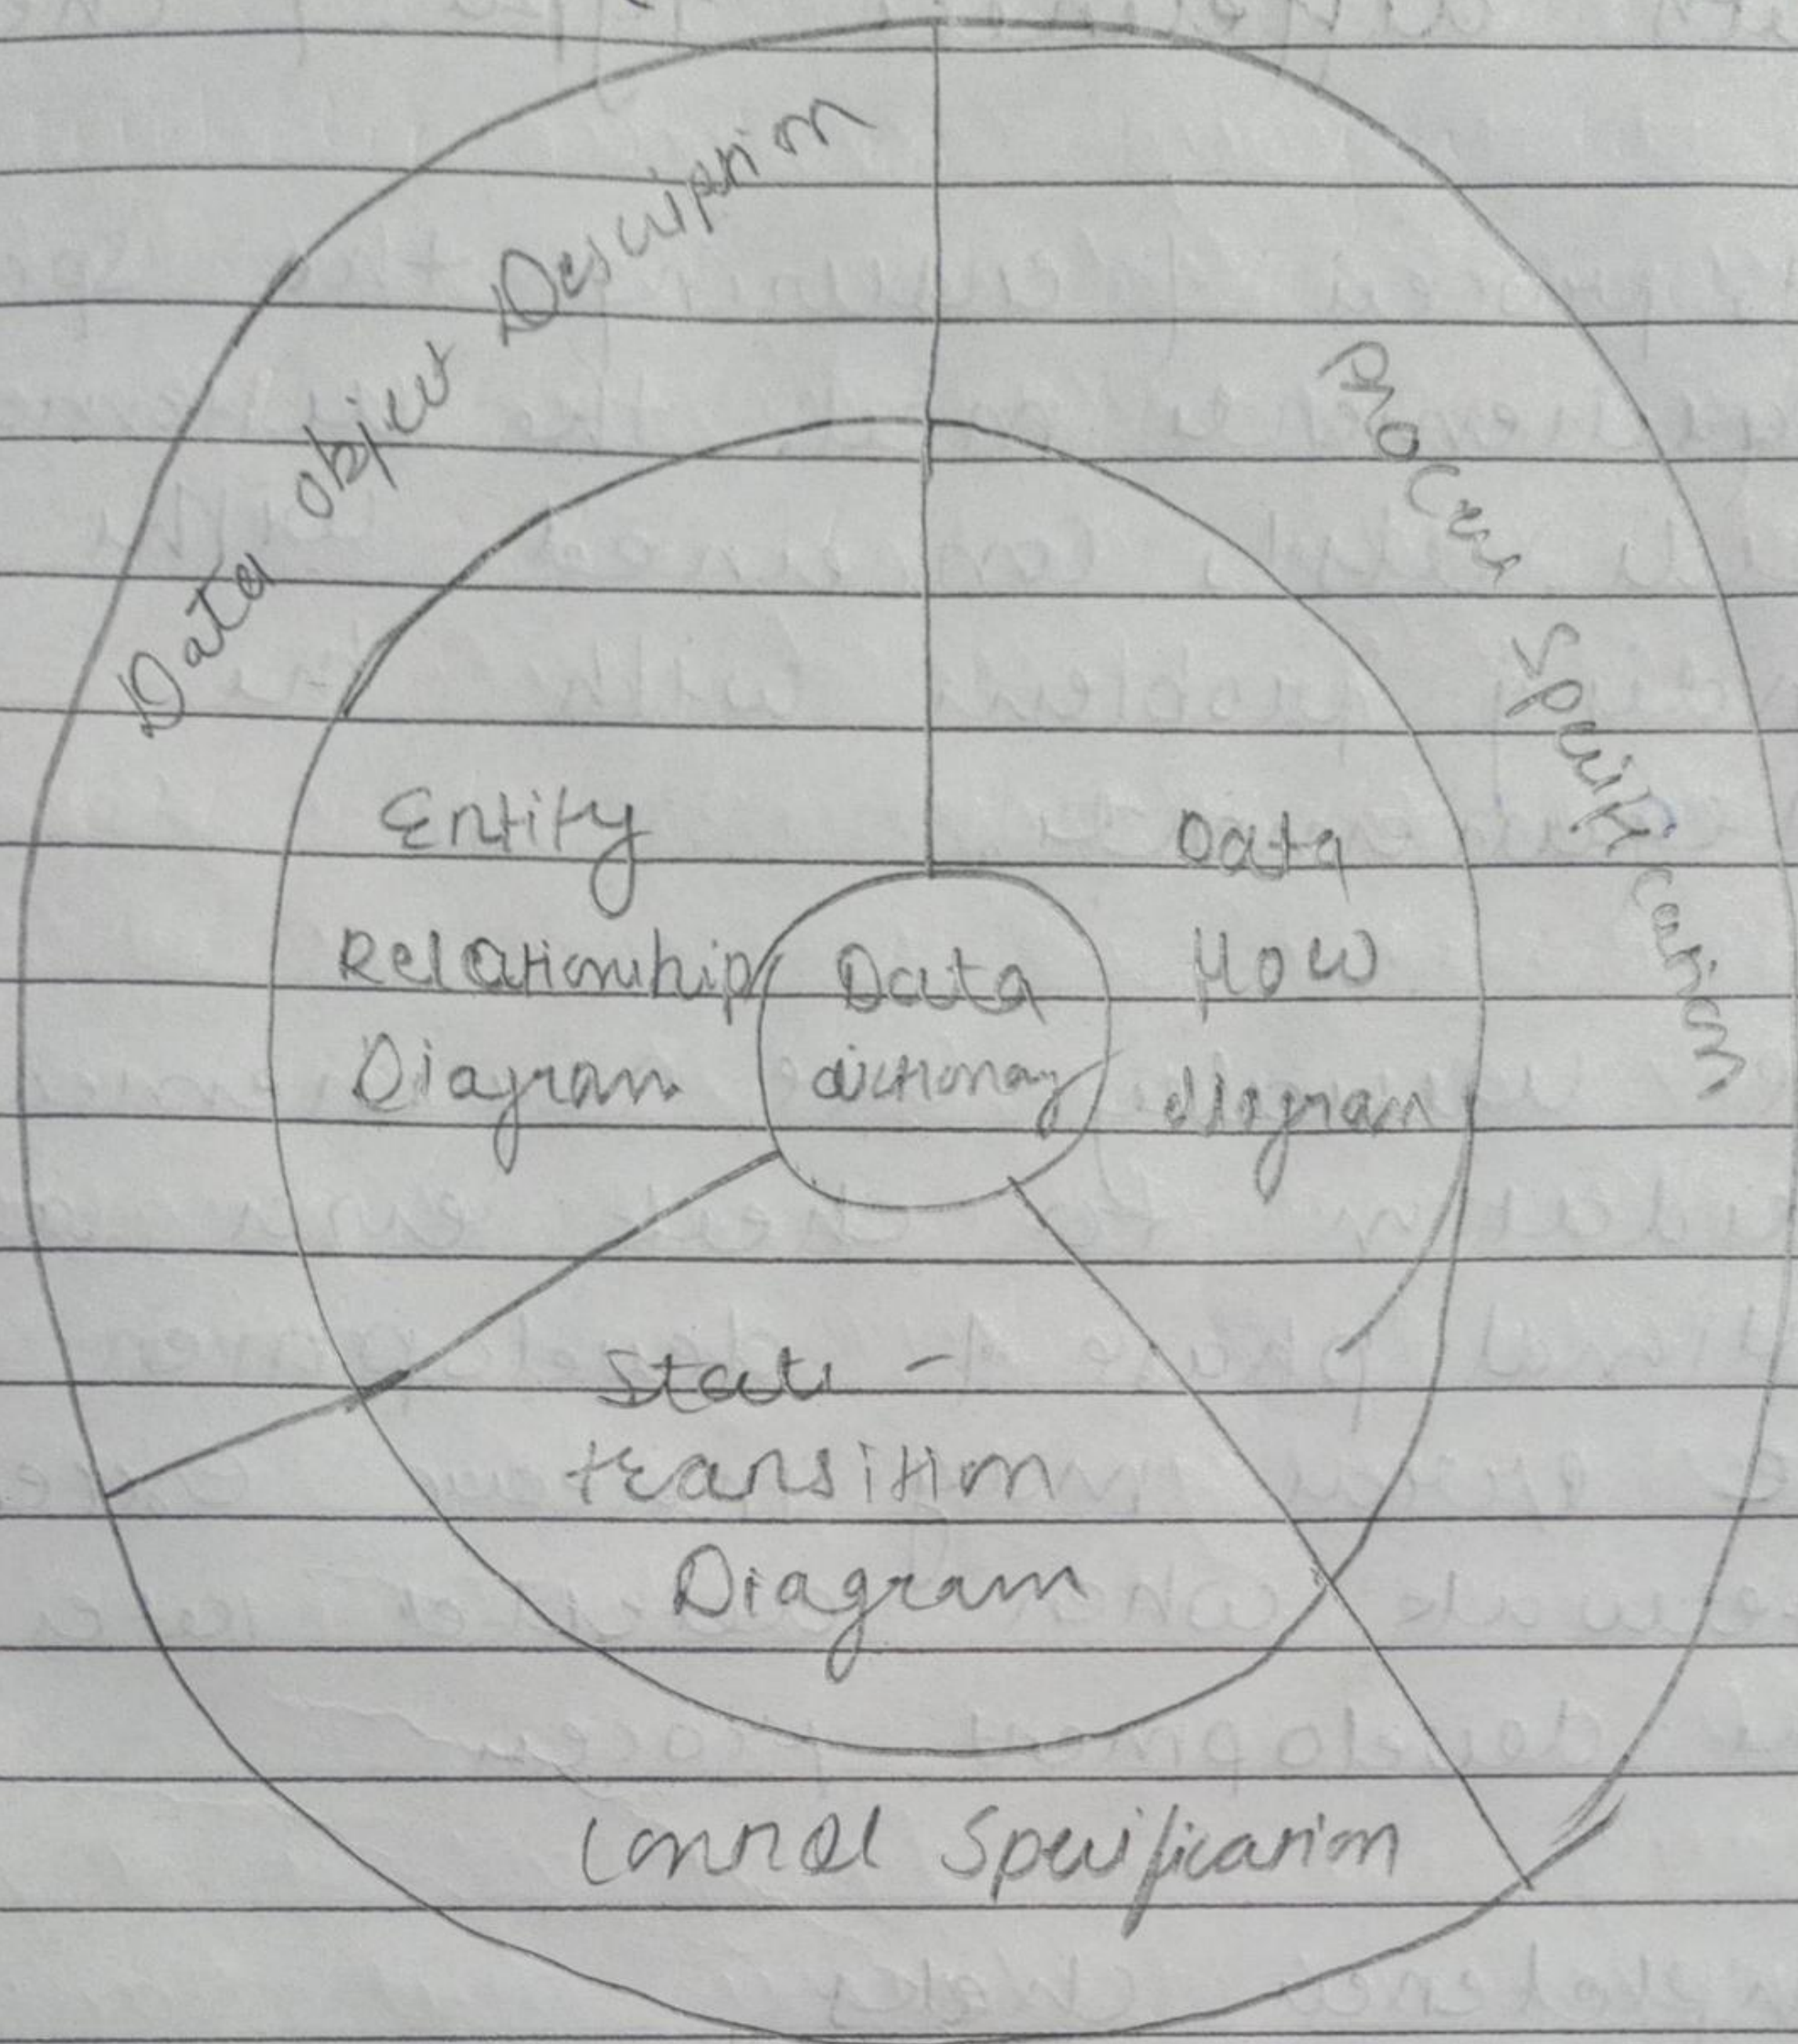 Data object Description
Process Specification
Entity
Relationship
Diagram
Data
dictionary
Data
flow
diagram
State -
transition
Diagram
Control Specification